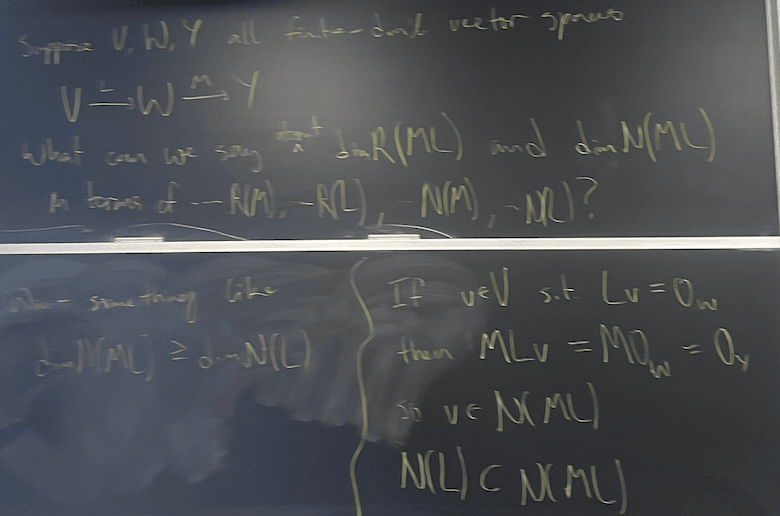 Suppose V, W, Y all finite-dim'l vector spaces
V —L→ W —M→ Y
What can we say about dim R(ML) and dim N(ML)
in terms of -- R(M), -- R(L), -- N(M), -- N(L)?
something like
dim N(ML) ≥ dim N(L)
If v∈V s.t. Lv = 0_W
then MLv = M0_W = 0_Y
so v ∈ N(ML)
N(L) ⊂ N(ML)